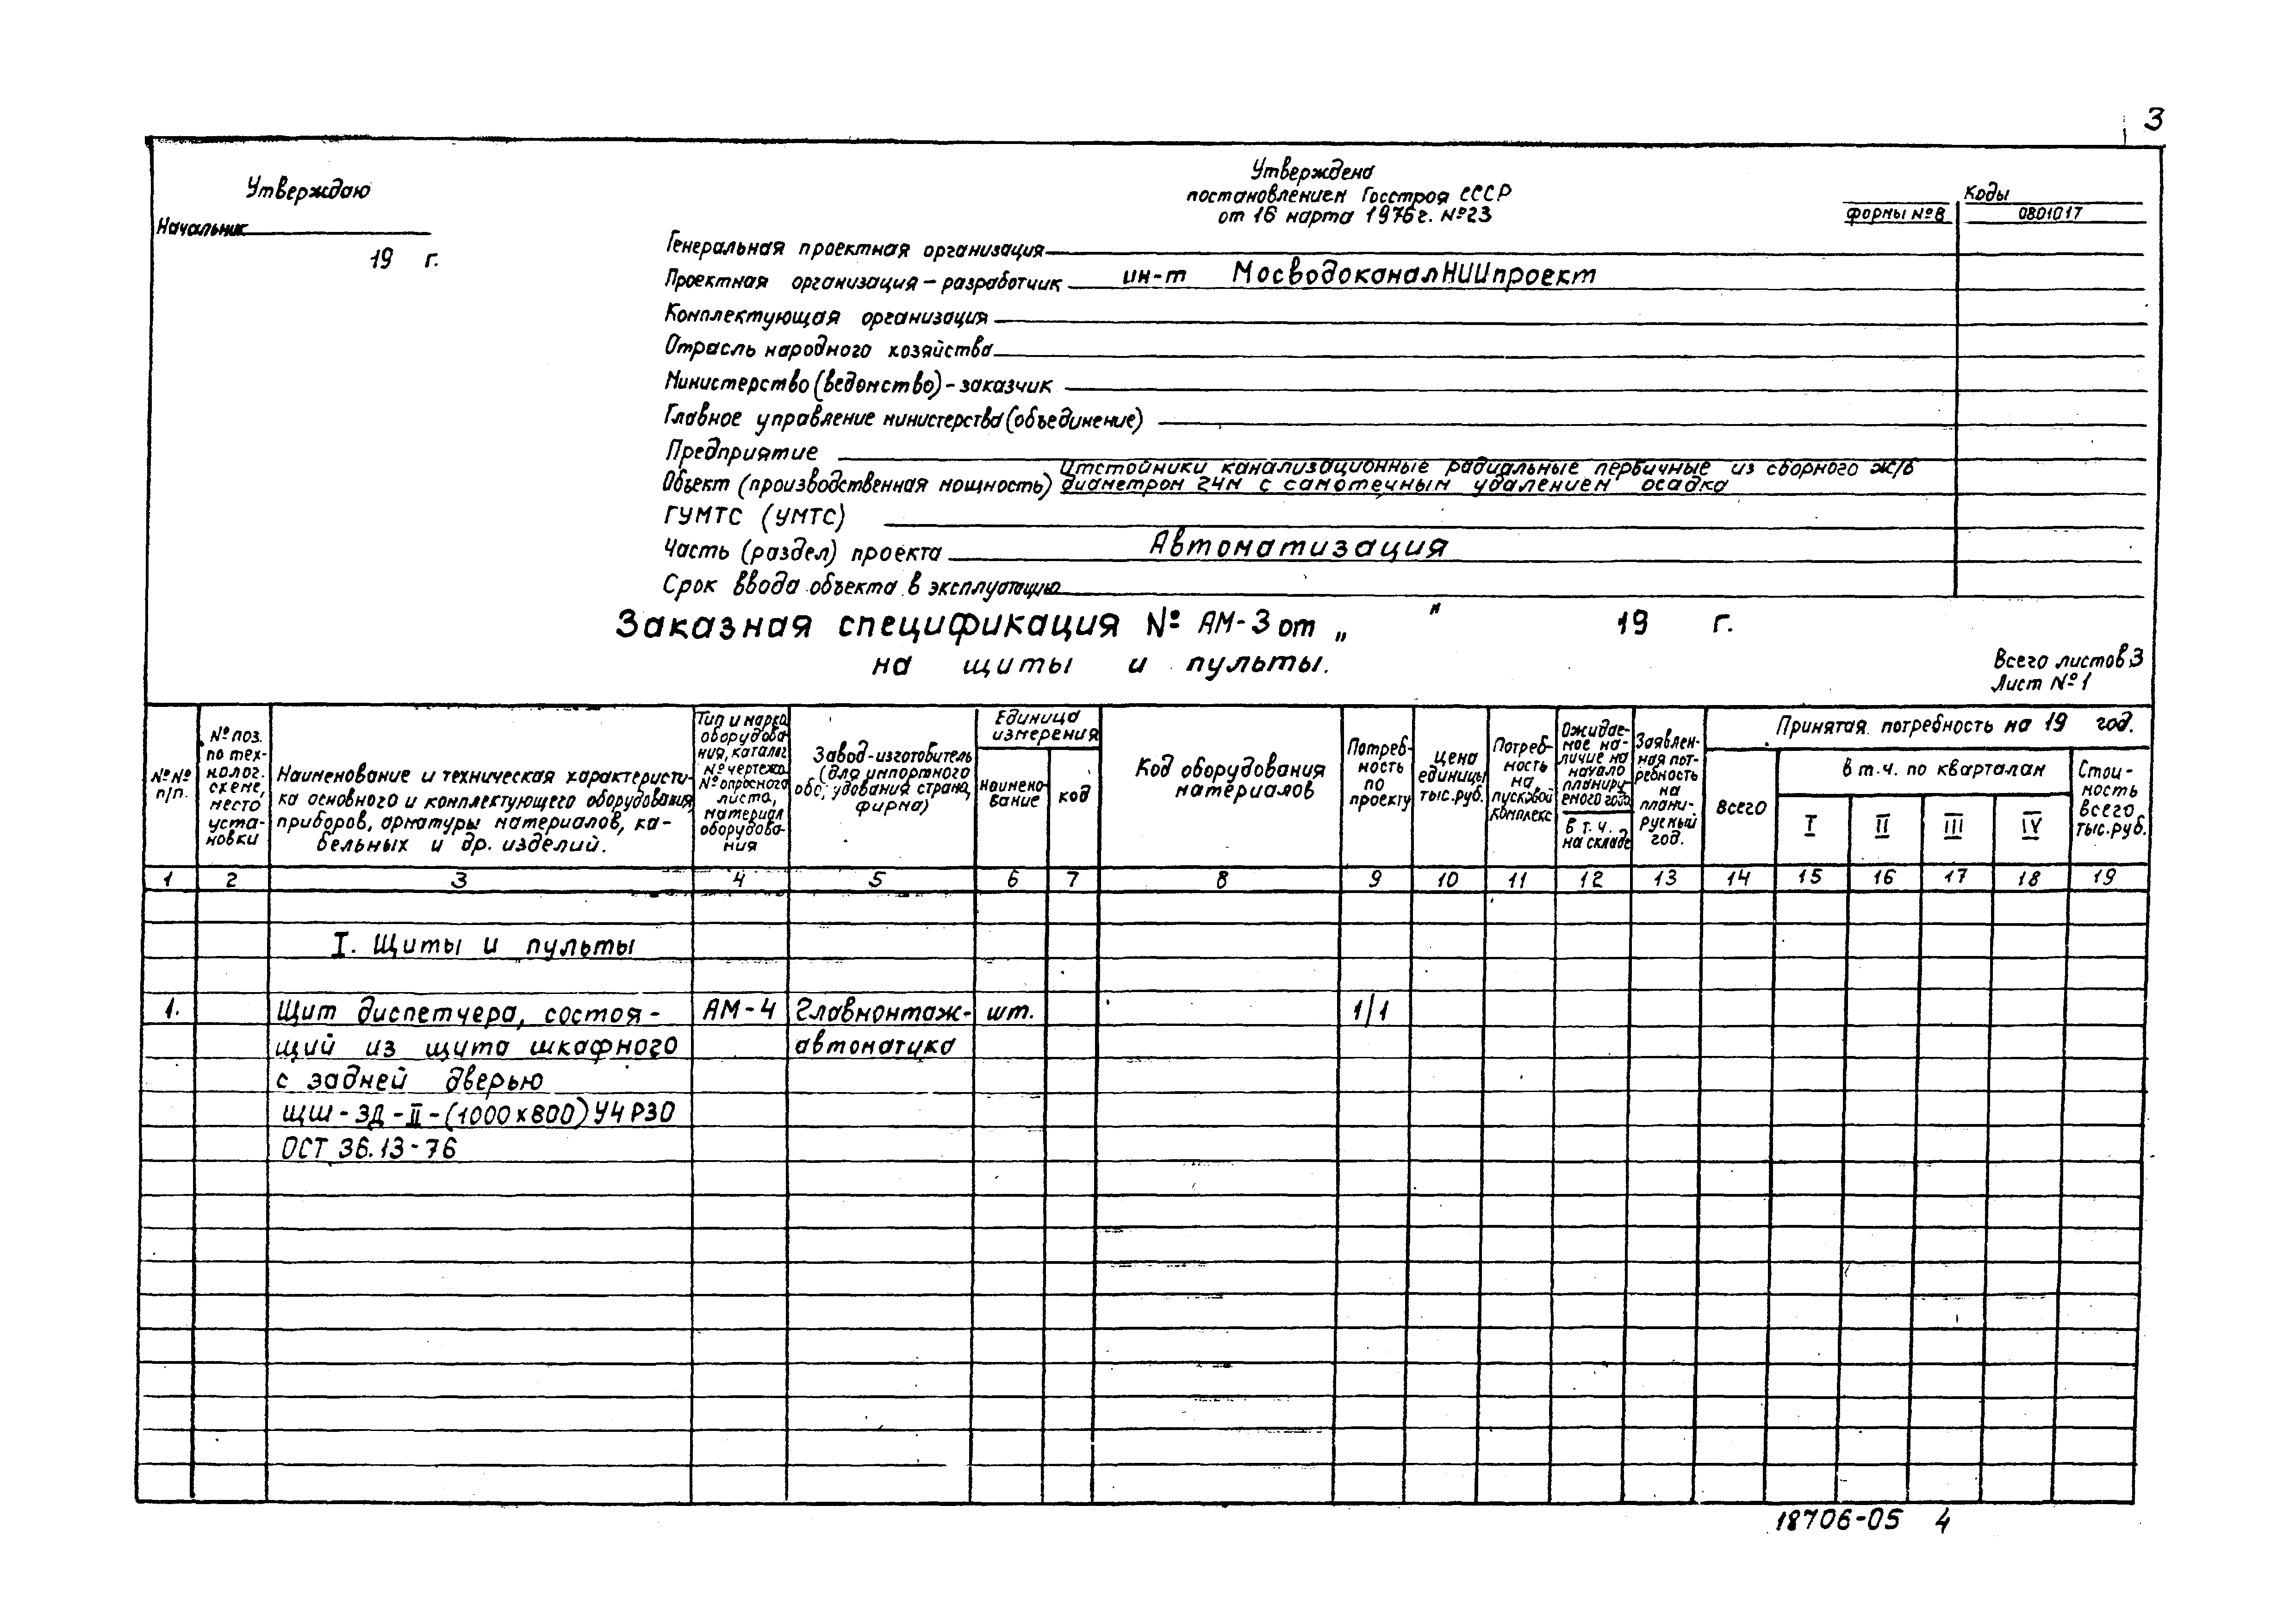 3
Утверждаю
Начальник
19 г.
Утверждена
постановлением Госстроя СССР
от 16 марта 1976г. №23
Коды
формы №8 0801017
Генеральная проектная организация
Проектная организация – разработчик ин-т МосводоканалНИИпроект
Комплектующая организация
Отрасль народного хозяйства
Министерство (ведомство) - заказчик
Главное управление министерства (объединение)
Предприятие
Отстойники канализационные радиальные первичные из сборного ж/б
Объект (производственная мощность) диаметром 24м с самотечным удалением осадка
ГУМТС (УМТС)
Часть (раздел) проекта Автоматизация
Срок ввода объекта в эксплуатацию
Заказная спецификация № АМ-3 от „ " 19 г.
на щиты и пульты.
Всего листов 3
Лист №1
№№
п/п.
№ поз.
по тех-
нолог.
схеме,
место
уста-
новки
Наименование и техническая характеристи-
ка основного и комплектующего оборудования,
приборов, арматуры материалов, ка-
бельных и др. изделий.
Тип и марка
оборудова-
ния, каталог
№ чертежа
№ опросного
листа,
материал
оборудова-
ния
Завод-изготовитель
(для импортного
оборудования страна,
фирма)
Единица
измерения
Наимено-
вание
код
Код оборудования
материалов
Потреб-
ность
по
проекту
Цена
единицы
тыс.руб.
Потреб-
ность
на
пусковой
комплекс
Ожидае-
мое на-
личие на
начало
планиру-
емого года
в т.ч.
на складе
Заявлен-
ная пот-
ребность
на
плани-
руемый
год.
Принятая потребность на 19 год.
всего
в т.ч. по кварталам
I II III IV
Стои-
мость
всего
тыс.руб.
1 2 3 4 5 6 7 8 9 10 11 12 13 14 15 16 17 18 19
I. Щиты и пульты
1. Щит диспетчера, состоя- АМ-4 Главмонтаж- шт. 1/1
щий из щита шкафного автоматика
с задней дверью
ЩШ-ЗД-II-(1000х800)У4Р30
ОСТ 36.13-76
18706-05 4